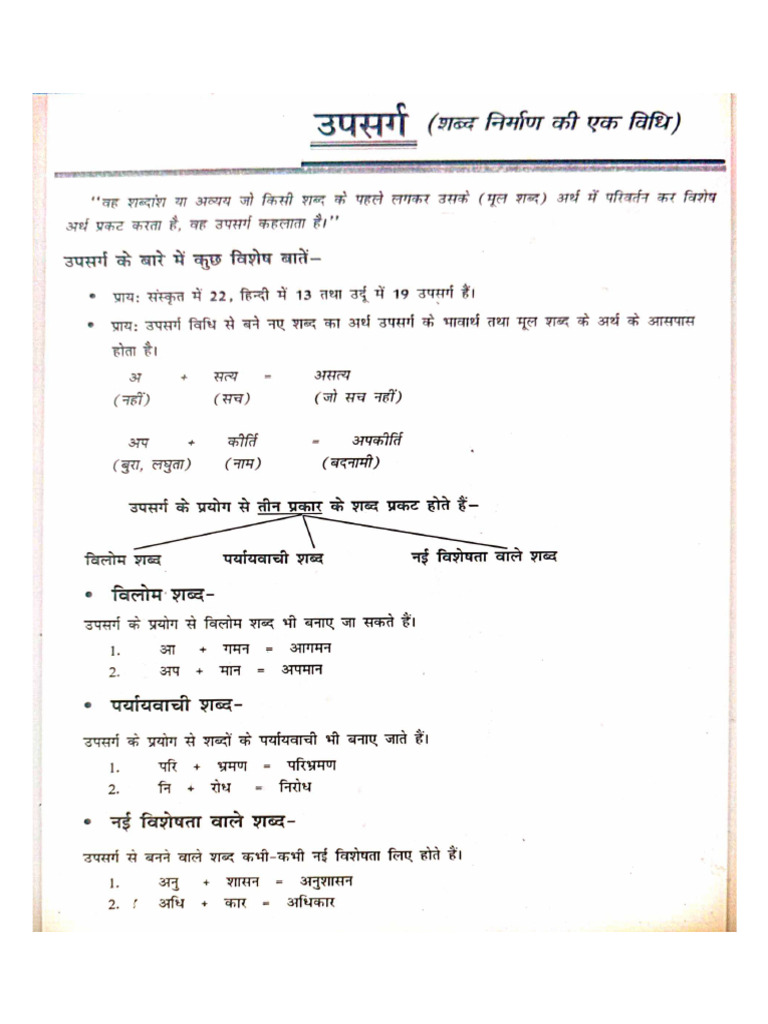 उपसर्ग (शब्द निर्माण की एक विधि)
"वह शब्दांश या अव्यय जो किसी शब्द के पहले लगकर उसके (मूल शब्द) अर्थ में परिवर्तन कर विशेष
अर्थ प्रकट करता है, वह उपसर्ग कहलाता है।"
उपसर्ग के बारे में कुछ विशेष बातें–
• प्राय: संस्कृत में 22, हिन्दी में 13 तथा उर्दू में 19 उपसर्ग हैं।
• प्राय: उपसर्ग विधि से बने नए शब्द का अर्थ उपसर्ग के भावार्थ तथा मूल शब्द के अर्थ के आसपास
होता है।
अ + सत्य = असत्य
(नहीं) (सच) (जो सच नहीं)
अप + कीर्ति = अपकीर्ति
(बुरा, लघुता) (नाम) (बदनामी)
उपसर्ग के प्रयोग से तीन प्रकार के शब्द प्रकट होते हैं–
विलोम शब्द पर्यायवाची शब्द नई विशेषता वाले शब्द
• विलोम शब्द-
उपसर्ग के प्रयोग से विलोम शब्द भी बनाए जा सकते हैं।
1. आ + गमन = आगमन
2. अप + मान = अपमान
• पर्यायवाची शब्द-
उपसर्ग के प्रयोग से शब्दों के पर्यायवाची भी बनाए जाते हैं।
1. परि + भ्रमण = परिभ्रमण
2. नि + रोध = निरोध
• नई विशेषता वाले शब्द-
उपसर्ग से बनने वाले शब्द कभी-कभी नई विशेषता लिए होते हैं।
1. अनु + शासन = अनुशासन
2. अधि + कार = अधिकार